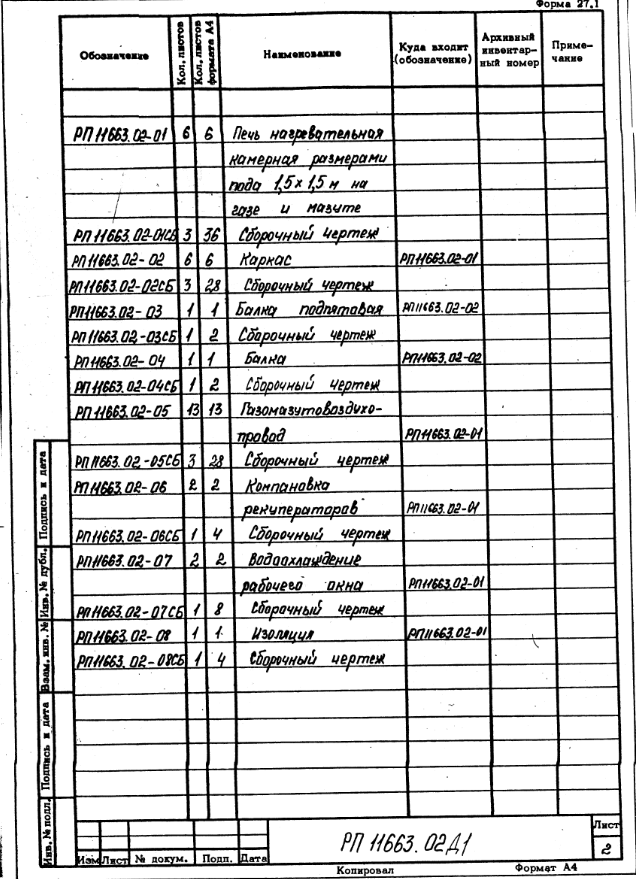 Форма 27.1
Обозначение Кол. листов Кол. листов формата А4 Наименование Куда входит (обозначение) Архивный инвентар-ный номер Приме-чание
РП 11663.02-01 6 6 Печь нагревательная
камерная размерами
пода 1,5×1,5 м на
газе и мазуте
РП 11663.02-01СБ 3 36 Сборочный чертеж
РП 11663.02-02 6 6 Каркас РП 11663.02-01
РП 11663.02-02СБ 3 28 Сборочный чертеж
РП 11663.02-03 1 1 Балка подпятовая РП 11663.02-02
РП 11663.02-03СБ 1 2 Сборочный чертеж
РП 11663.02-04 1 1 Балка РП 11663.02-02
РП 11663.02-04СБ 1 2 Сборочный чертеж
РП 11663.02-05 13 13 Газомазутовоздухо-
провод РП 11663.02-01
РП 11663.02-05СБ 3 28 Сборочный чертеж
РП 11663.02-06 2 2 Компановка
рекуператоров РП 11663.02-01
РП 11663.02-06СБ 1 4 Сборочный чертеж
РП 11663.02-07 2 2 Водоохлаждение
рабочего окна РП 11663.02-01
РП 11663.02-07СБ 1 8 Сборочный чертеж
РП 11663.02-08 1 1 Изоляция РП 11663.02-01
РП 11663.02-08СБ 1 4 Сборочный чертеж
Подпись и дата
Инв. № дубл.
Взам. инв. №
Подпись и дата
Инв. № подл.
РП 11663.02Д1
Лист
2
Изм Лист № докум. Подп. Дата
Копировал Формат А4